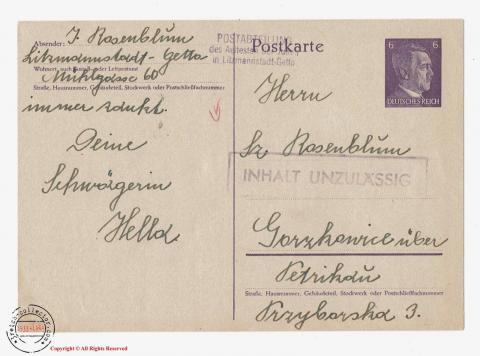 Absender: J. Rosenblum
Litzmannstadt-Getto
Wohnort, auch Zustell- oder Leitpostamt
Mühlgasse 60
Straße, Hausnummer, Gebäudeteil, Stockwerk oder Postschließfachnummer
immer
Deine
Schwägerin
Hella.
POSTABTEILUNG
des Aeltesten der Juden
in Litzmannstadt-Getto
Postkarte
6 6
DEUTSCHES REICH
Herrn
Sz Rosenblum
INHALT UNZULÄSSIG
Gorzkowice über
Petrikau
Straße, Hausnummer, Gebäudeteil, Stockwerk oder Postschließfachnummer
Przyborska 3.
Copyright © All Rights Reserved